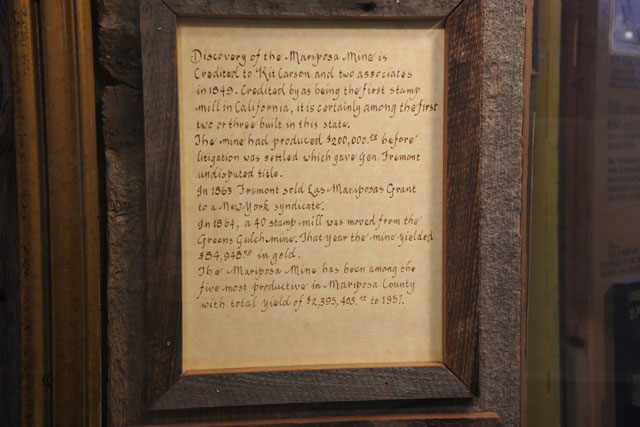 Discovery of the Mariposa Mine is
Credited to Kit Carson and two associates
in 1849. Credited by as being the first stamp
mill in California, it is certainly among the first
two or three built in this state.
The mine had produced $200,000.ºº before
litigation was settled which gave Gen. Fremont
undisputed title.
In 1863 Fremont sold Las Mariposas Grant
to a New York syndicate.
In 1864, a 40 stamp mill was moved from the
Greens Gulch mine. That year the mine yielded
$34,948.ºº in gold.
The Mariposa Mine has been among the
five most productive in Mariposa County
with total yield of $2,395,403.ºº to 1957.